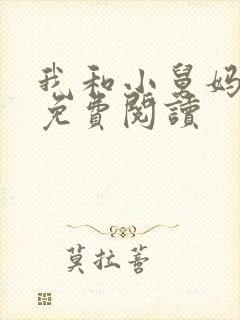 我和小舅妈
免費閱讀
莫拉菩